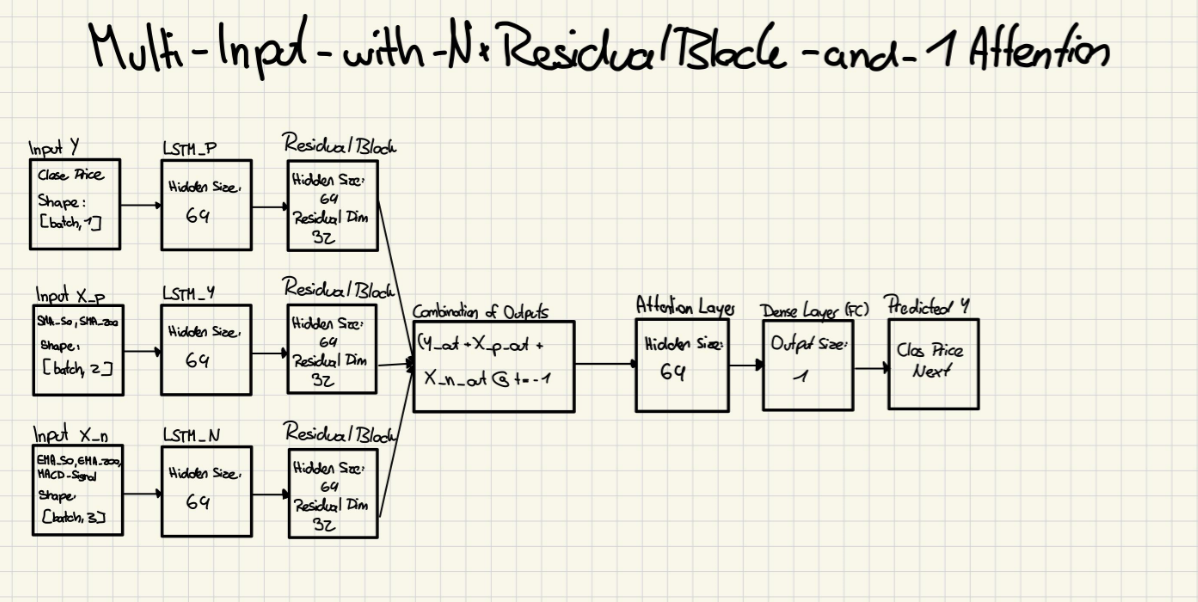 Multi-Input-with-N*ResidualBlock-and-1 Attention
Input Y
Close Price
Shape:
[batch, 1]
LSTM_P
Hidden Size:
64
Residual Block
Hidden Size:
64
Residual Dim
32
Input X_p
SMA_50, SMA_200
Shape:
[batch, 2]
LSTM_Y
Hidden Size:
64
Residual Block
Hidden Size:
64
Residual Dim
32
Input X_n
EMA_50, EMA_200,
MACD-Signal
Shape:
[batch, 3]
LSTM_N
Hidden Size:
64
Residual Block
Hidden Size:
64
Residual Dim
32
Combination of Outputs
(Y_out + X_p_out +
X_n_out @ t=-1
Attention Layer
Hidden Size:
64
Dense Layer (FC)
Output Size:
1
Predicted Y
Clos Price
Next